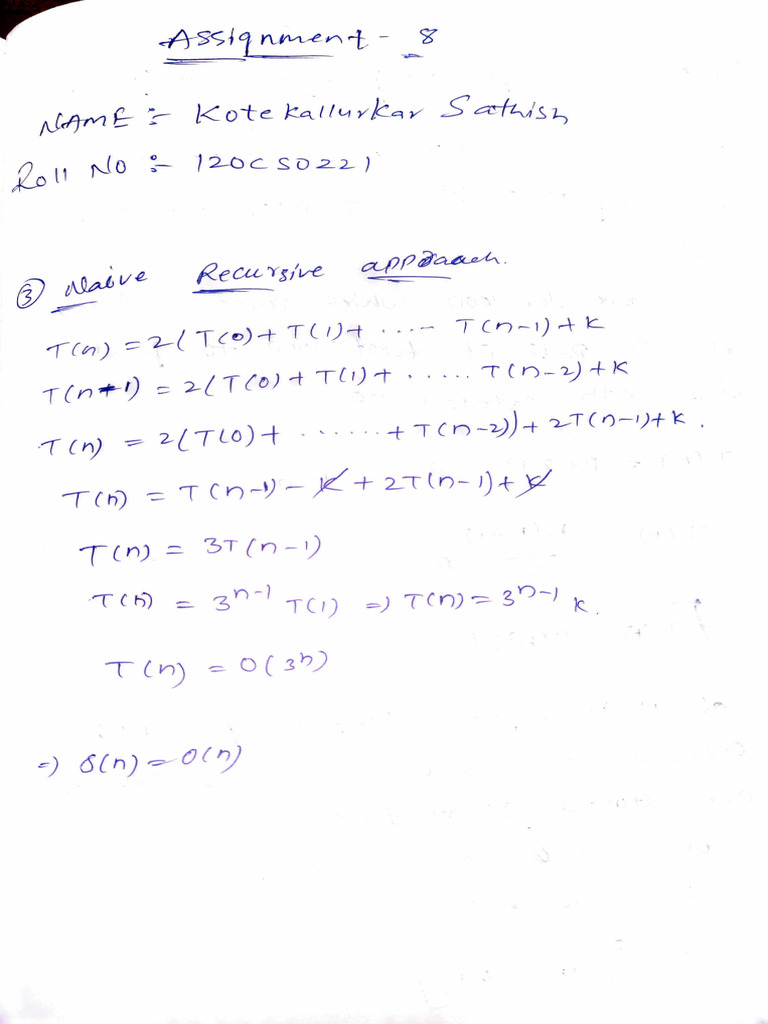 Assignment - 8
NAME :- Kotekallurkar Sathish
Roll No :- 120CS0221
③ Naive Recursive approach.
T(n) = 2(T(0) + T(1) + .... T(n-1) + K
T(n-1) = 2(T(0) + T(1) + ..... T(n-2) + K
T(n) = 2(T(0) + ...... + T(n-2)) + 2T(n-1) + K .
T(n) = T(n-1) - K + 2T(n-1) + K
T(n) = 3T(n-1)
T(n) = 3ⁿ⁻¹ T(1) => T(n) = 3ⁿ⁻¹ K.
T(n) = O(3ⁿ)
=) S(n) = O(n)